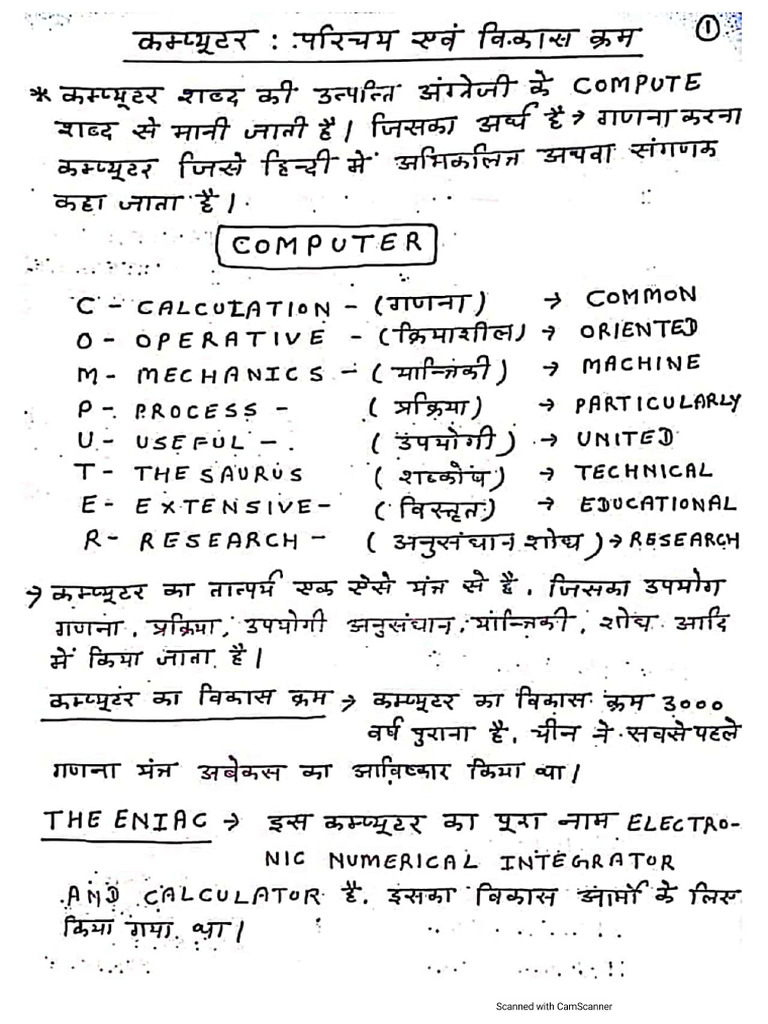 ①
कम्प्यूटर : परिचय एवं विकास क्रम
* कम्प्यूटर शब्द की उत्पत्ति अंग्रेजी के COMPUTE
शब्द से मानी जाती है। जिसका अर्थ है → गणना करना
कम्प्यूटर जिसे हिन्दी में अभिकलित्र अथवा संगणक
कहा जाता है।
COMPUTER
C - CALCULATION - (गणना) → COMMON
O - OPERATIVE - (क्रियाशील) → ORIENTED
M - MECHANICS - (यान्त्रिकी) → MACHINE
P - PROCESS - (प्रक्रिया) → PARTICULARLY
U - USEFUL - (उपयोगी) → UNITED
T - THESAURUS (शब्कोष) → TECHNICAL
E - EXTENSIVE - (विस्तृत) → EDUCATIONAL
R - RESEARCH - (अनुसंधान शोध) → RESEARCH
→ कम्प्यूटर का तात्पर्य एक ऐसे यंत्र से है, जिसका उपयोग
गणना, प्रक्रिया, उपयोगी अनुसंधान, यान्त्रिकी, शोध आदि
में किया जाता है।
कम्प्यूटर का विकास क्रम → कम्प्यूटर का विकास क्रम 3000
वर्ष पुराना है, चीन ने सबसे पहले
गणना यंत्र अबेकस का आविष्कार किया था।
THE ENIAC → इस कम्प्यूटर का पूरा नाम ELECTRO-
NIC NUMERICAL INTEGRATOR
AND CALCULATOR है. इसका विकास आर्मी के लिए
किया गया था।
Scanned with CamScanner